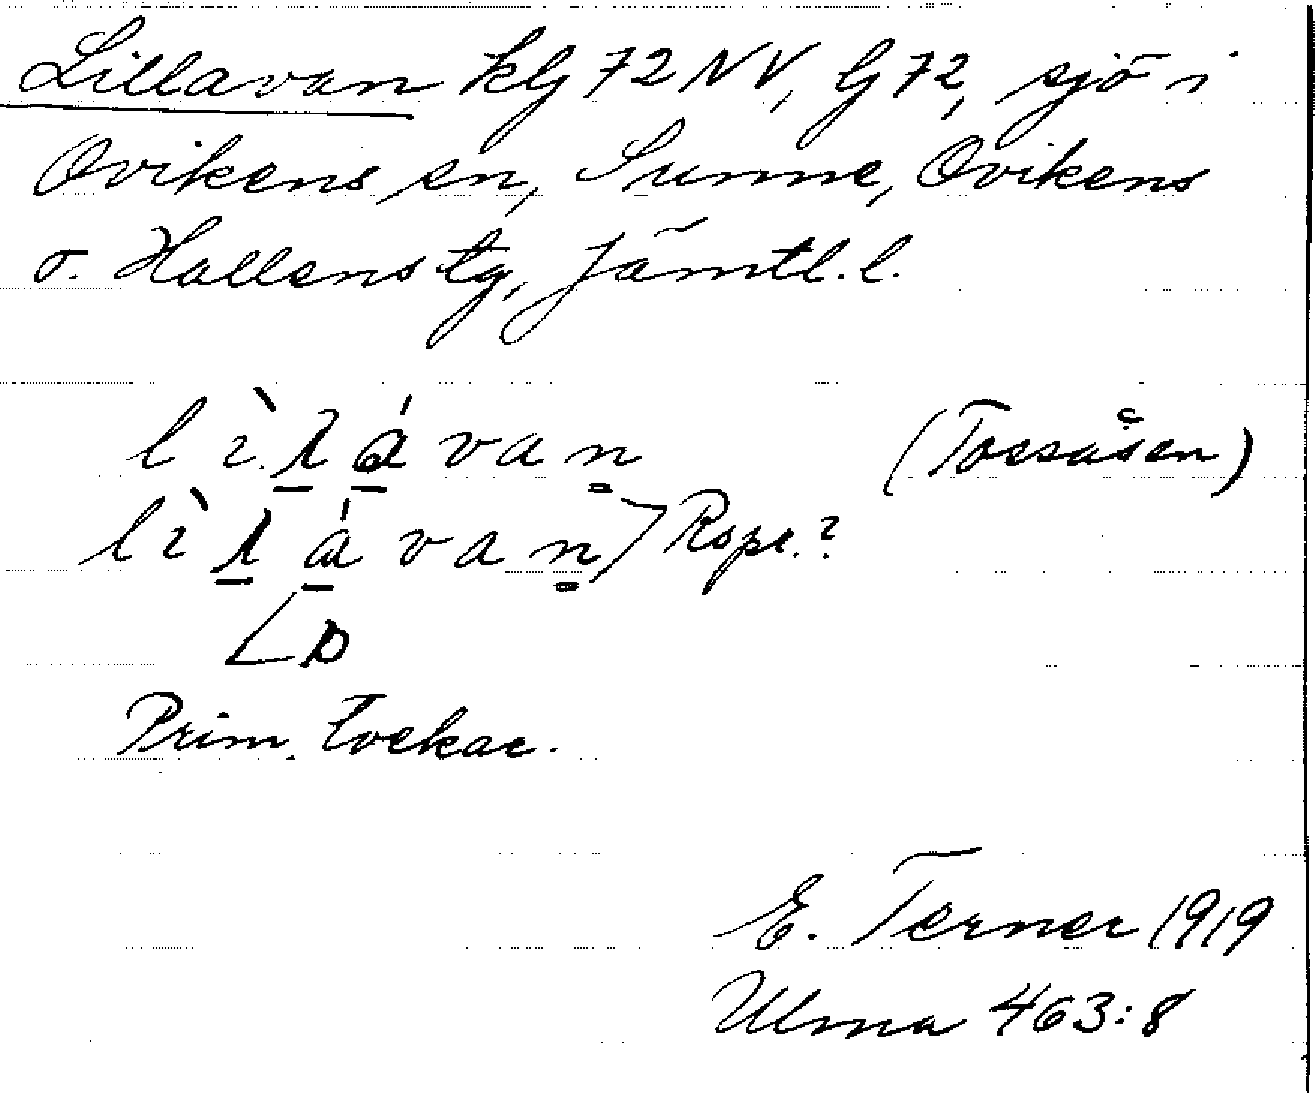 Lillavan klg 72 NV, G 72, sjö i
Ovikens sn, Sunne, Ovikens
o. Hallens tg, Jämtl. l.
lìlávan (Tossåsen)
lìlávan Rspr.?
Prim. tvekar.
E. Terner 1919
Ulma 463:8